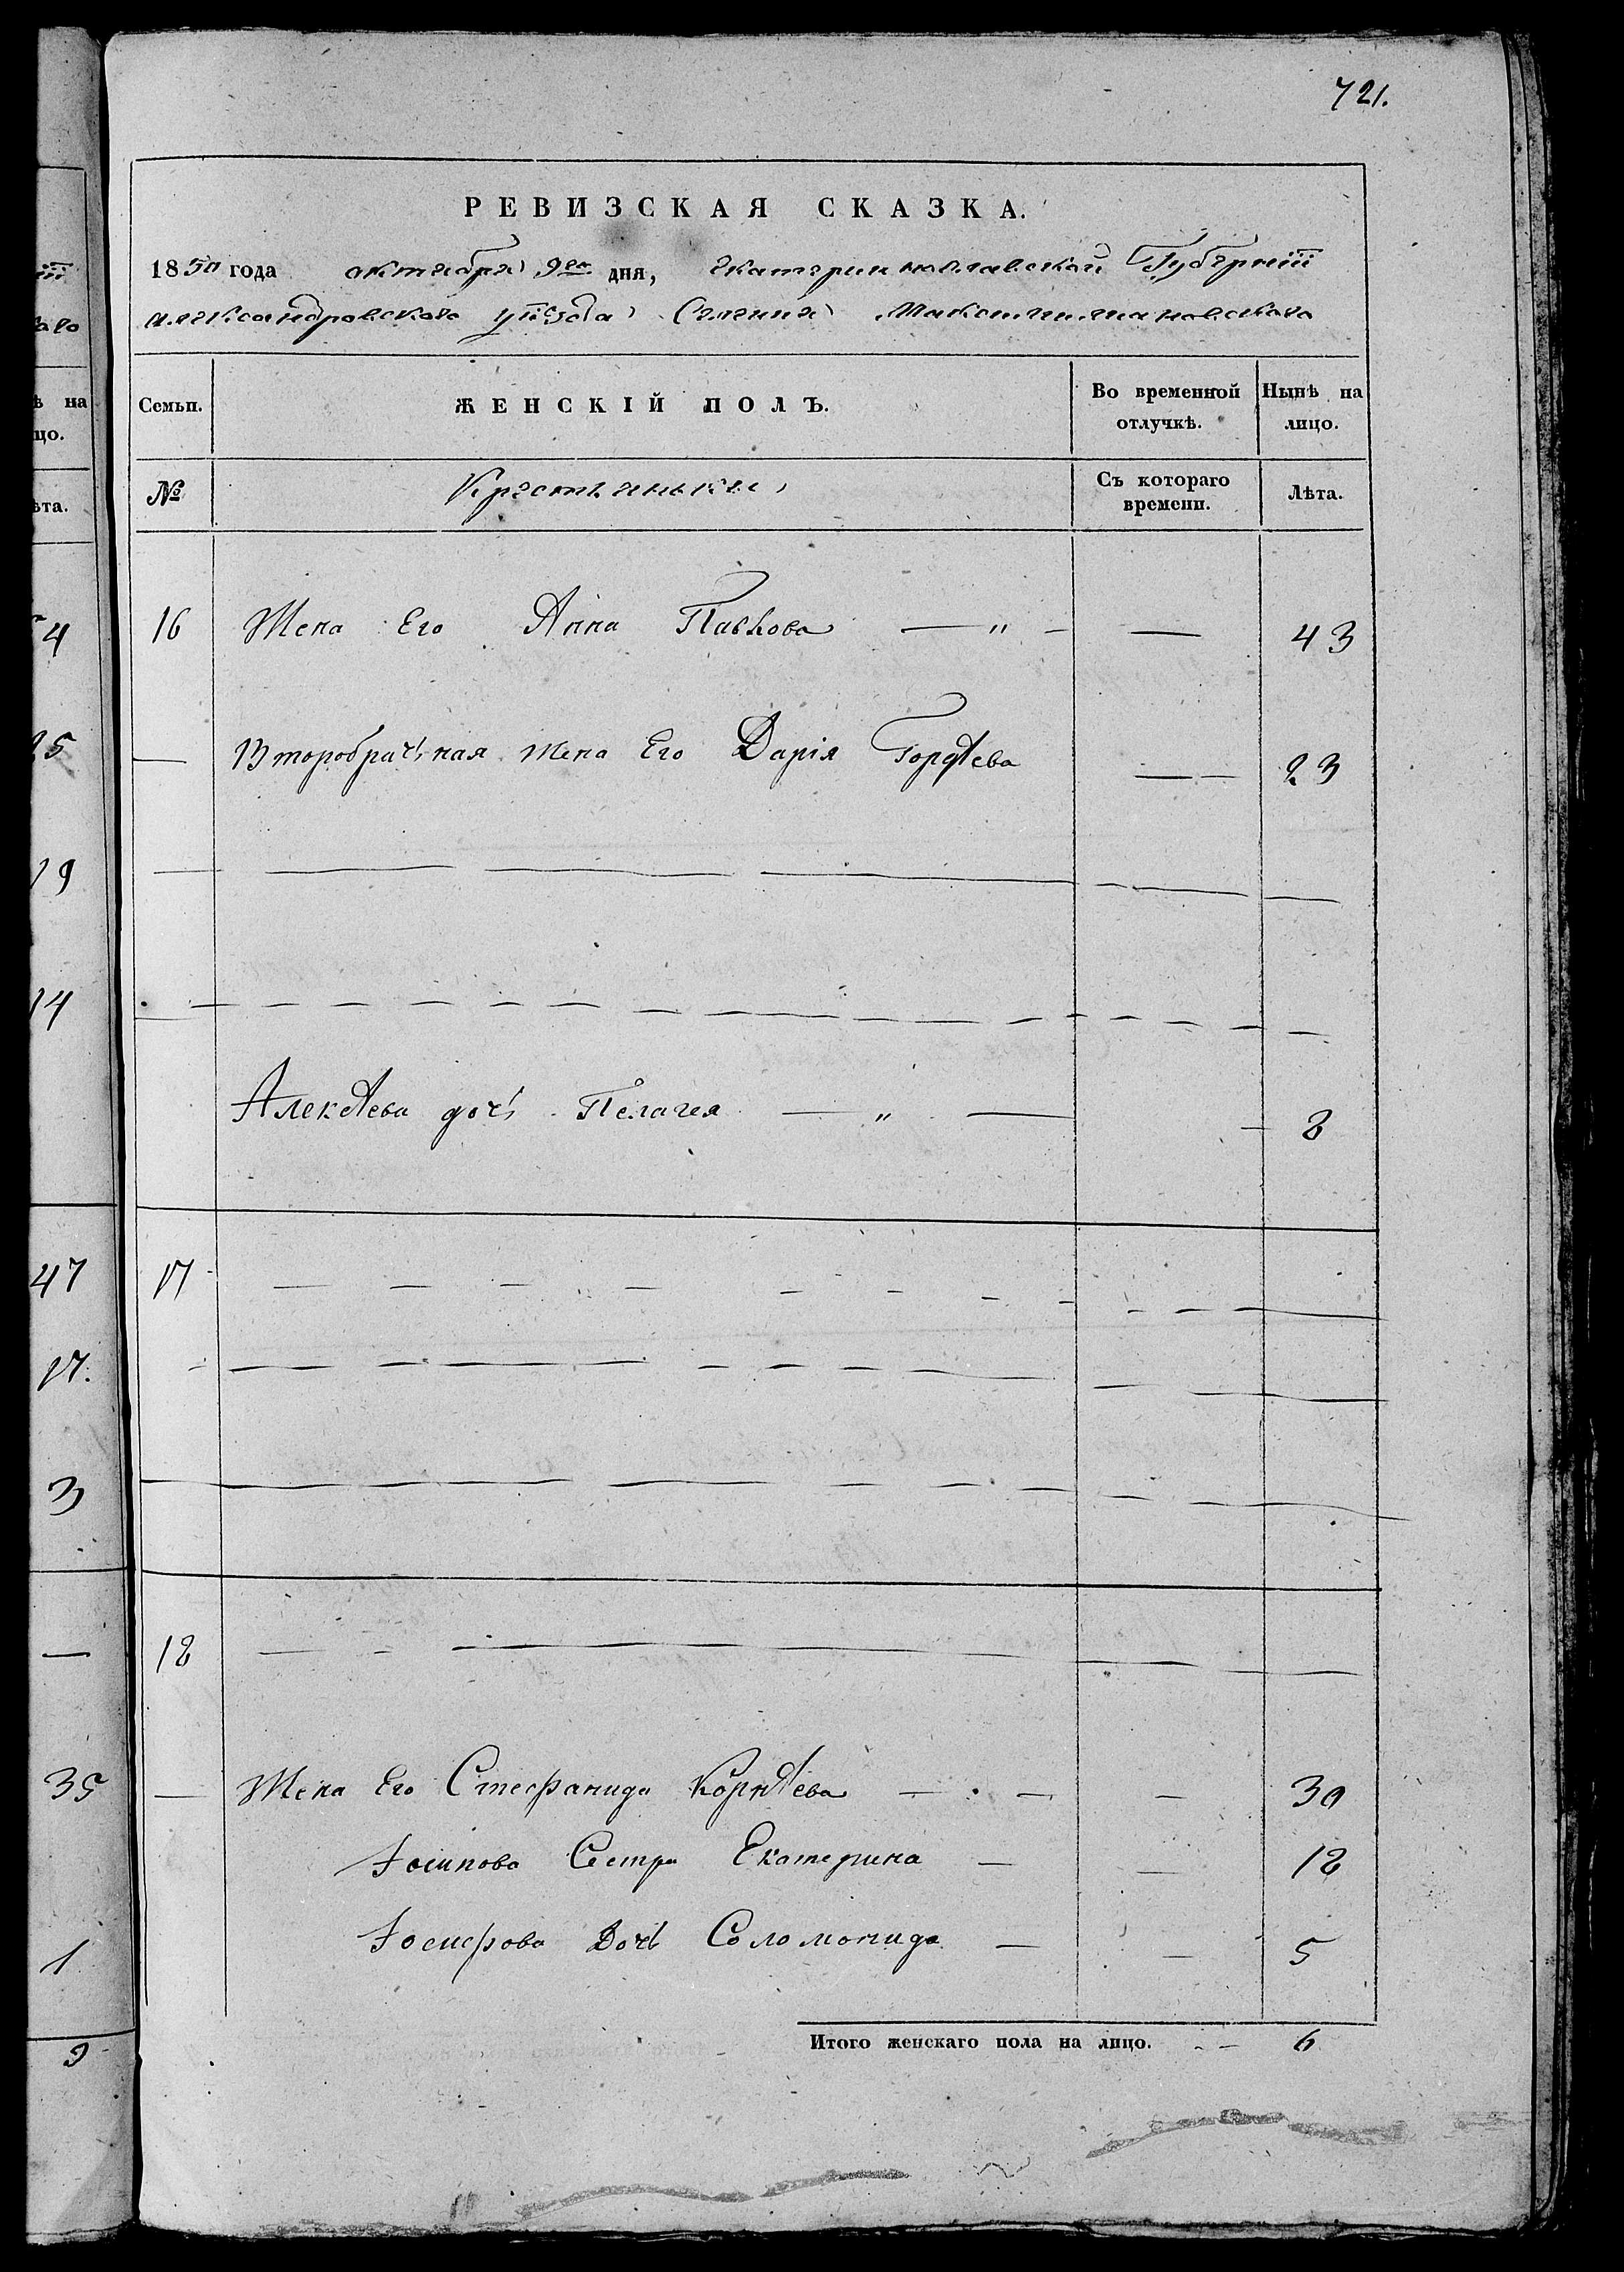 721.
РЕВИЗСКАЯ СКАЗКА.
1850 года октября 9го дня, Екатеринославской Губернiи
Александровского уѣзда Селенiя Максимилиановского
Семьи. ЖЕНСКIЙ ПОЛЪ. Во временной отлучкѣ. Нынѣ на лицо.
№ Крестьяньки Съ котораго времени. Лѣта.
16 Жена Его Анна Павлова — " — — 43
— Второбрачьная жена Его Дарiя Гордѣева — — 23
Алексѣева дочь Пелагея — " — — 8
17
18
— Жена Его Стефанида Корнѣева — — — 30
Iосипова Сестра Екатерина — — 18
Iосифова Дочь Соломонида — — 5
Итого женскаго пола на лицо. - — 6
iи
аго
ѣ на
цо.
ѣта.
4
25
19
14
47
17.
3
—
35
1
9